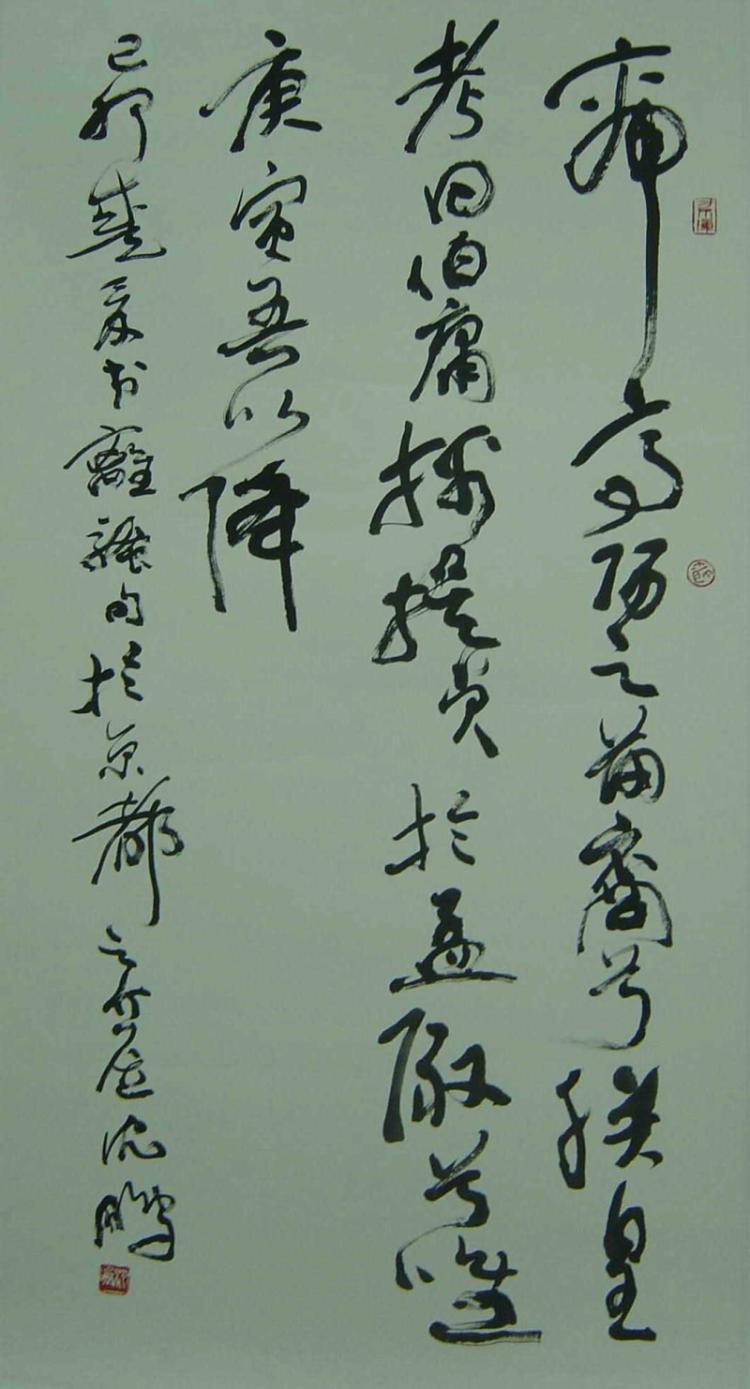 帝高陽之苗裔兮朕皇
考曰伯庸攝提貞於孟陬兮惟
庚寅吾以降
己卯盛夏書離騷句於京都之介居沈鵬